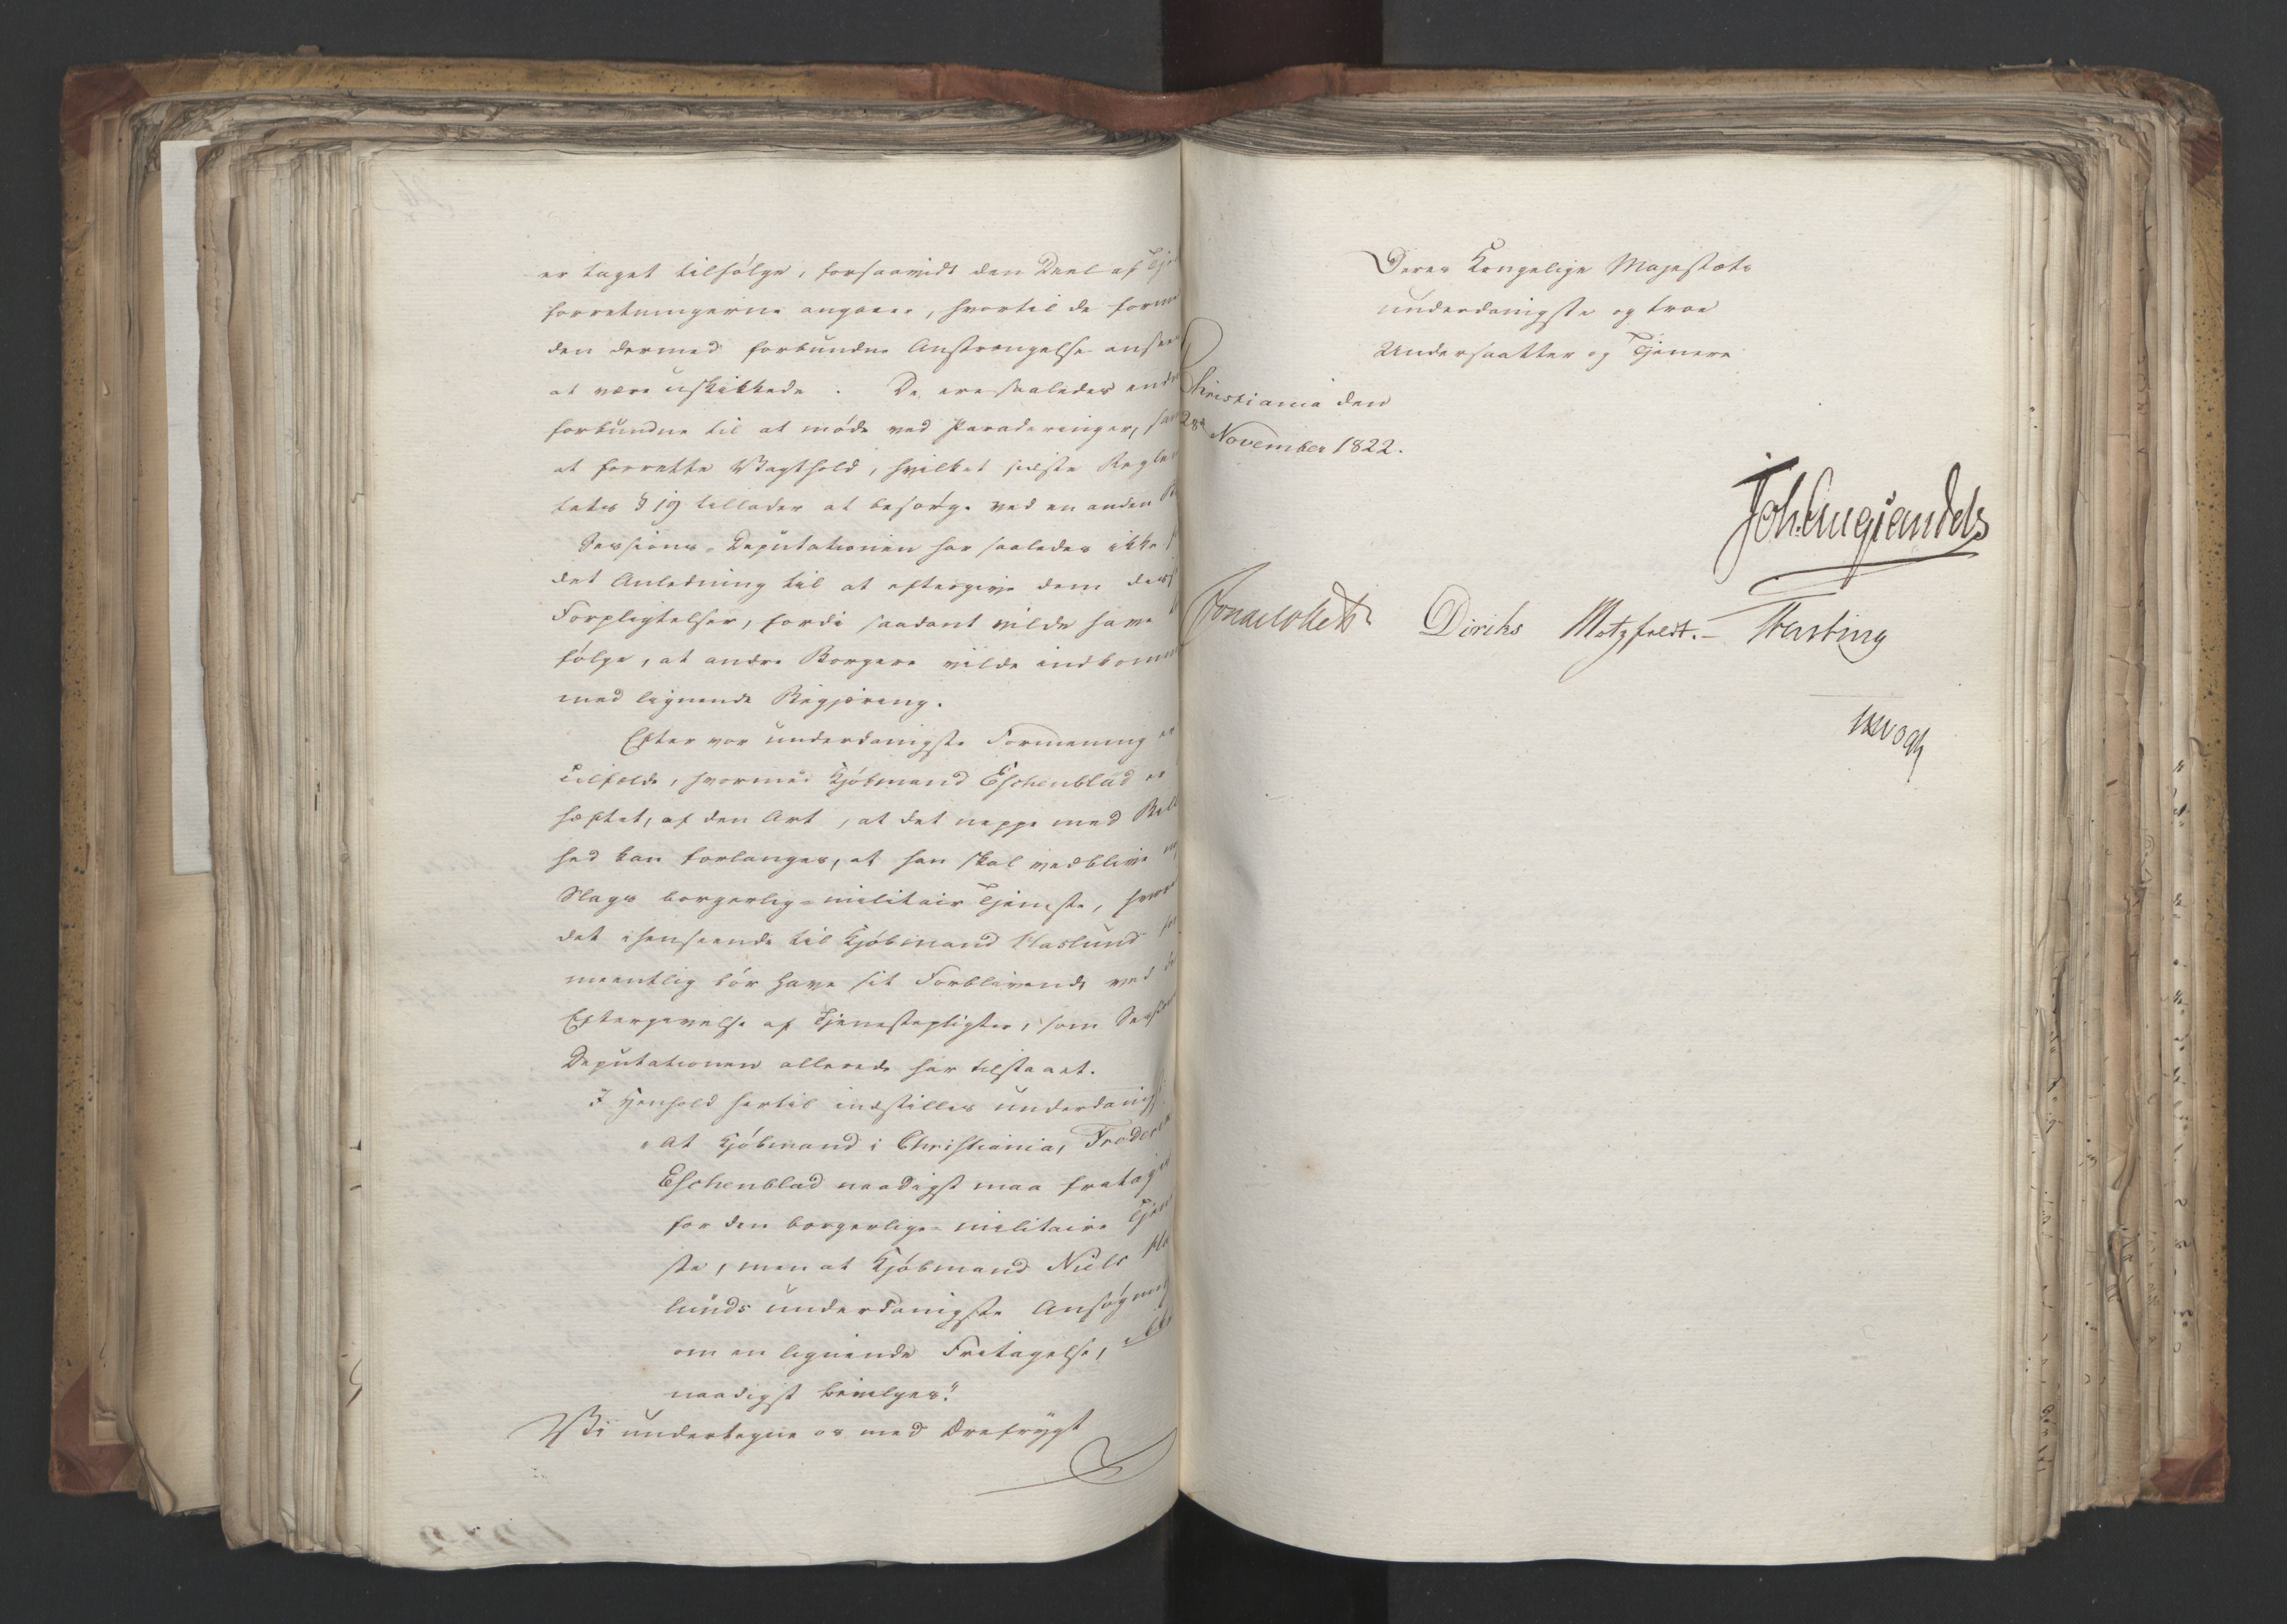 er taget tilfølge, forsaavidt den Deel af
forretningerne angaaer, hvortil de form
den dermed forbundne Anstrængelse anse
at være uskikkede. De ere saaledes end
forbundne til at møde ved Paraderinger, sam
at forrette Vagthold, hvilket sidste Regle
tets § 19 tillader at besørge ved en anden
Sessions-Deputationen har saaledes ikke
det Anledning til at eftergive dem dess
Forpligtelser, fordi saadant vilde have
følge, at andre Borgere vilde indkomm
med lignende Begjæring.
Efter vor underdanigste Formening er
Tilfælde, hvormed Kjøbmand Eschenblad er
hæftet, af den Art, at det neppe med Bil
hed kan forlanges, at han skal vedblive
Slags borgerlig-militair Tjeneste, hvor
det ihenseende til Kjøbmand Haslund
meentlig bør have sit Forblivende ved
Eftergivelse af Tjenestepligter, som Sess
Deputationen allerede har tilstaaet.
I Henhold hertil indstilles underdanigst
"At Kjøbmand i Christiania, Frederik
Eschenblad naadigst maa fratag
for den borgerlige-militaire Tjene
ste, men at Kjøbmand Niels Ha
lunds underdanigste Ansøgning
om en lignende Fritagelse, ikke
naadigst bevilges."
Vi undertegne os med Ærefrygt
Deres Kongelige Majestæts
underdanigste og troe
Undersaatter og Tjenere
Christiania den
28de November 1822.
Joh Aug Sandels
Sommerhielm Diriks Motzfeldt. Fasting